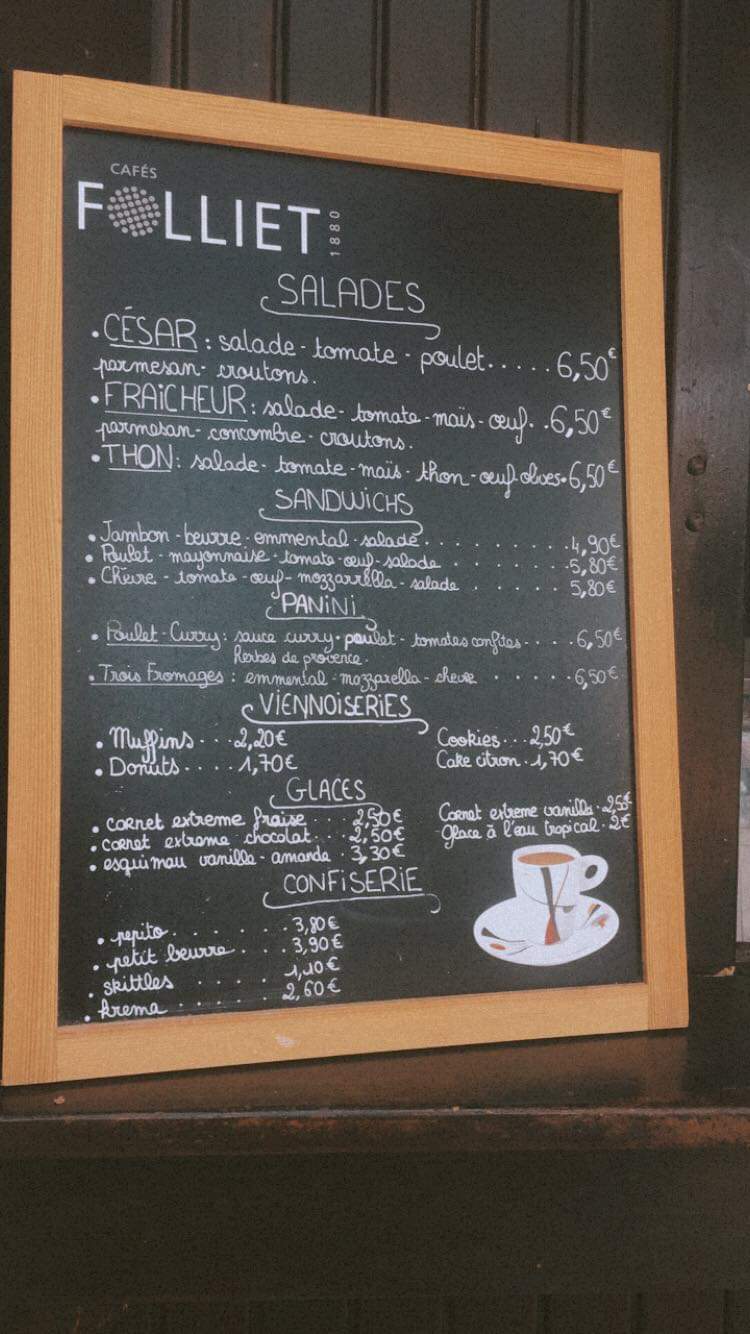 CAFÉS
FOLLIET 1880
SALADES
• CÉSAR : salade - tomate - poulet. . . . . 6,50€
parmesan - croutons.
• FRAICHEUR : salade - tomate - maïs - œuf. . 6,50€
parmesan - concombre - croutons.
• THON : salade - tomate - maïs - thon - œuf - olives • 6,50€
SANDWICHS
• Jambon - beurre - emmental - salade . . . . . . . . . 4,90€
• Poulet - mayonnaise - tomate - œuf - salade . . . . . . 5,80€
• Chèvre - tomate - œuf - mozzarrella - salade . . . . . 5,80€
PANINI
• Poulet - Curry : sauce curry - poulet - tomates confites . . . . 6,50€
herbes de provence.
• Trois Fromages : emmental - mozzarella - chevre . . . . . 6,50€
VIENNOISERIES
• Muffins . . . 2,20€ Cookies . . . 2,50€
• Donuts . . . . 1,70€ Cake citron . 1,70€
GLACES
• cornet extreme fraise . . . 2,50€ Cornet extreme vanille . 2,5€
• cornet extreme chocolat . . . 2,50€ - Glace à l'eau tropical . 2€
• esquimau vanille - amande . 3,30€
CONFISERIE
• pepito . . . . . . . 3,80€
• petit beurre . . . . 3,90€
• skittles . . . . . . 1,10€
• krema . . . . . . . 2,60€